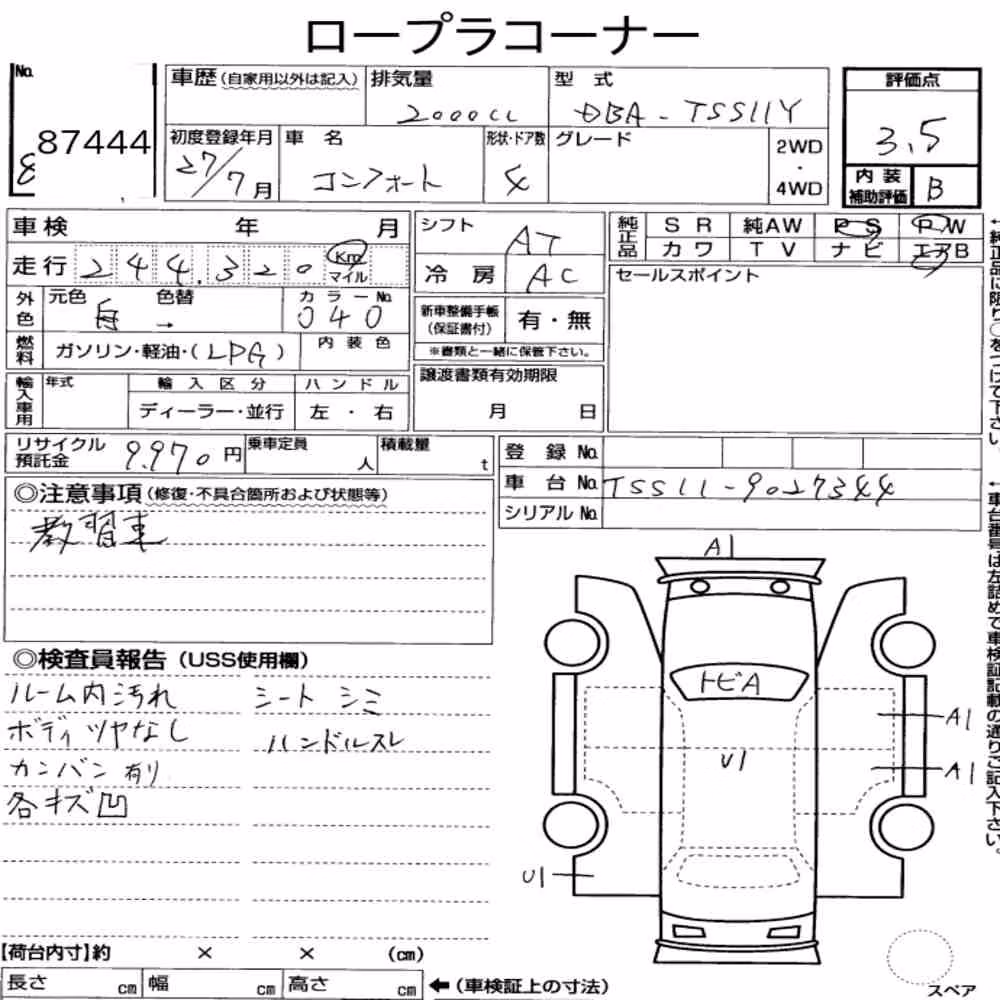 ロープラコーナー
No.
87444
車歴(自家用以外は記入)
排気量
2000cc
型式
DBA-TSS11Y
評価点
3.5
初度登録年月
27/7月
車名
コンフォート
形状・ドア数
4
グレード
2WD
・
4WD
内装
補助評価
B
車検 年 月
走行 244,320 Km
マイル
シフト
AT
冷房
AC
純正品
SR 純AW PS PW
カワ TV ナビ エアB
セールスポイント
外色
元色
色替
→
カラーNo.
040
新車整備手帳
(保証書付)
有・無
※書類と一緒に保管下さい。
燃料
ガソリン・軽油・(LPG)
内装色
輸入車用
年式
輸入区分
ディーラー・並行
ハンドル
左・右
譲渡書類有効期限
月 日
リサイクル
預託金
9,970円
乗車定員
人
積載量
t
登録No.
車台No.
TSS11-9027344
シリアルNo.
←純正品に限り○をつけて下さい。
←車台番号は左詰めで車検証記載の通りご記入下さい。
◎注意事項(修復・不具合箇所および状態等)
教習車
◎検査員報告(USS使用欄)
ルーム内汚れ
シートシミ
ボディツヤなし
ハンドルスレ
カンバン有り
各キズ凹
A1
トビA
A1
U1
A1
U1
【荷台内寸】約 × × (cm)
長さ cm
幅 cm
高さ cm
←(車検証上の寸法)
スペア